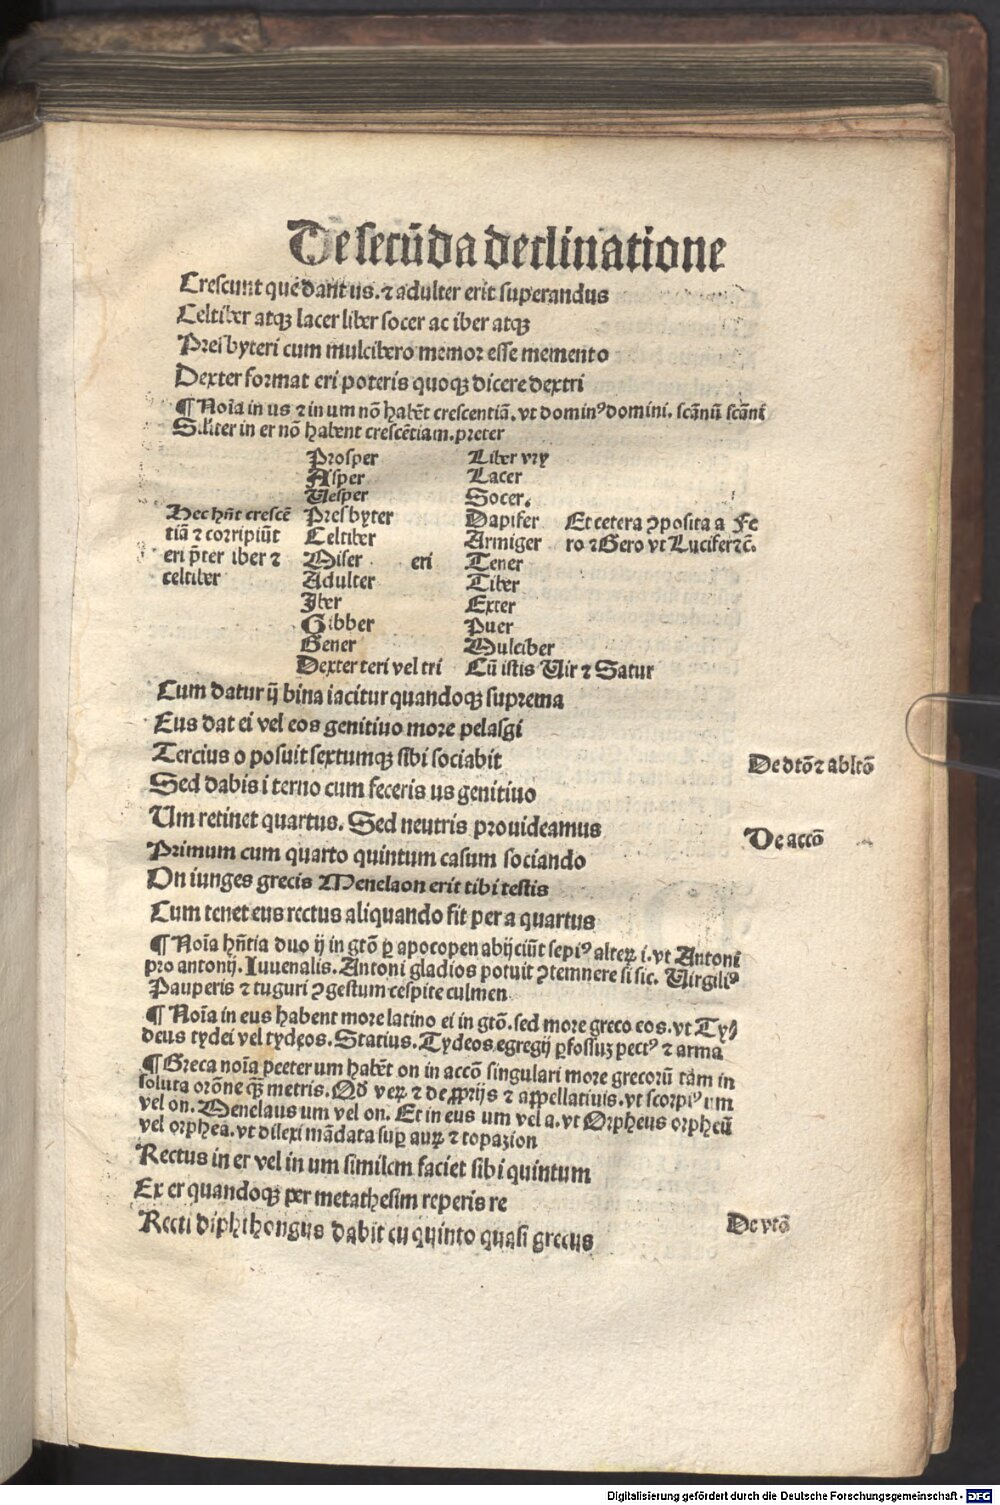 De secūda declinatione
Crescunt que dant us. ⁊ adulter erit superandus
Celtiber atqꝫ lacer liber socer ac iber atqꝫ
Presbyteri cum mulcibero memor esse memento
Dexter format eri poteris quoqꝫ dicere dextri
¶ Noīa in us ⁊ in um nō habēt crescentiā. vt dominꝰ domini. scānū scāni
Siliter in er nō habent crescētiam. preter
Prosper Liber vry
Asper Lacer
Uesper Socer.
Hec hn̄t crescē Presbyter Dapifer Et cetera ꝯposita a Fe
tiā ⁊ corripiūt Celtiber Armiger ro ⁊ Gero vt Lucifer ⁊c̄.
eri p̄ter iber ⁊ Miser eri Tener
celtiber Adulter Tiber
Iber Exter
Gibber Puer
Gener Mulciber
Dexter teri vel tri Cū istis Uir ⁊ Satur
Cum datur ij bina iacitur quandoqꝫ suprema
Eus dat ei vel eos genitiuo more pelasgi
Tercius o posuit sextumqꝫ sibi sociabit
De dtō ⁊ abltō
Sed dabis i terno cum feceris us genitiuo
Um retinet quartus. Sed neutris prouideamus
De accō
Primum cum quarto quintum casum sociando
On iunges grecis Menelaon erit tibi testis
Cum tenet eus rectus aliquando fit per a quartus
¶ Noīa hn̄tia duo ij in gtō ꝑ apocopen abijciūt sepiꝰ alteꝝ i. vt Antoni
pro antonij. Iuuenalis. Antoni gladios potuit ꝯtemnere si sic. Uirgiliꝰ
Pauperis ⁊ tuguri ꝯgestum cespite culmen
¶ Noīa in eus habent more latino ei in gtō. sed more greco eos. vt Ty⸗
deus tydei vel tydeos. Statius. Tydeos egregij ꝑfossuꝫ pectꝰ ⁊ arma
¶ Greca noīa preter um habēt on in accō singulari more grecorū tam in
soluta orōne qꝫ̄ metris. Qd̄ veꝝ ⁊ de ꝓprijs ⁊ appellatiuis. vt scorpiꝰ um
vel on. Menelaus um vel on. Et in eus um vel a. vt Orpheus orpheū
vel orphea. vt dilexi mādata suꝑ auꝝ ⁊ topazion
Rectus in er vel in um similem faciet sibi quintum
Ex er quandoqꝫ per metathesim reperis re
De vtō
Recti diphthongus dabit eu quinto quasi grecus
Digitalisierung gefördert durch die Deutsche Forschungsgemeinschaft - DFG